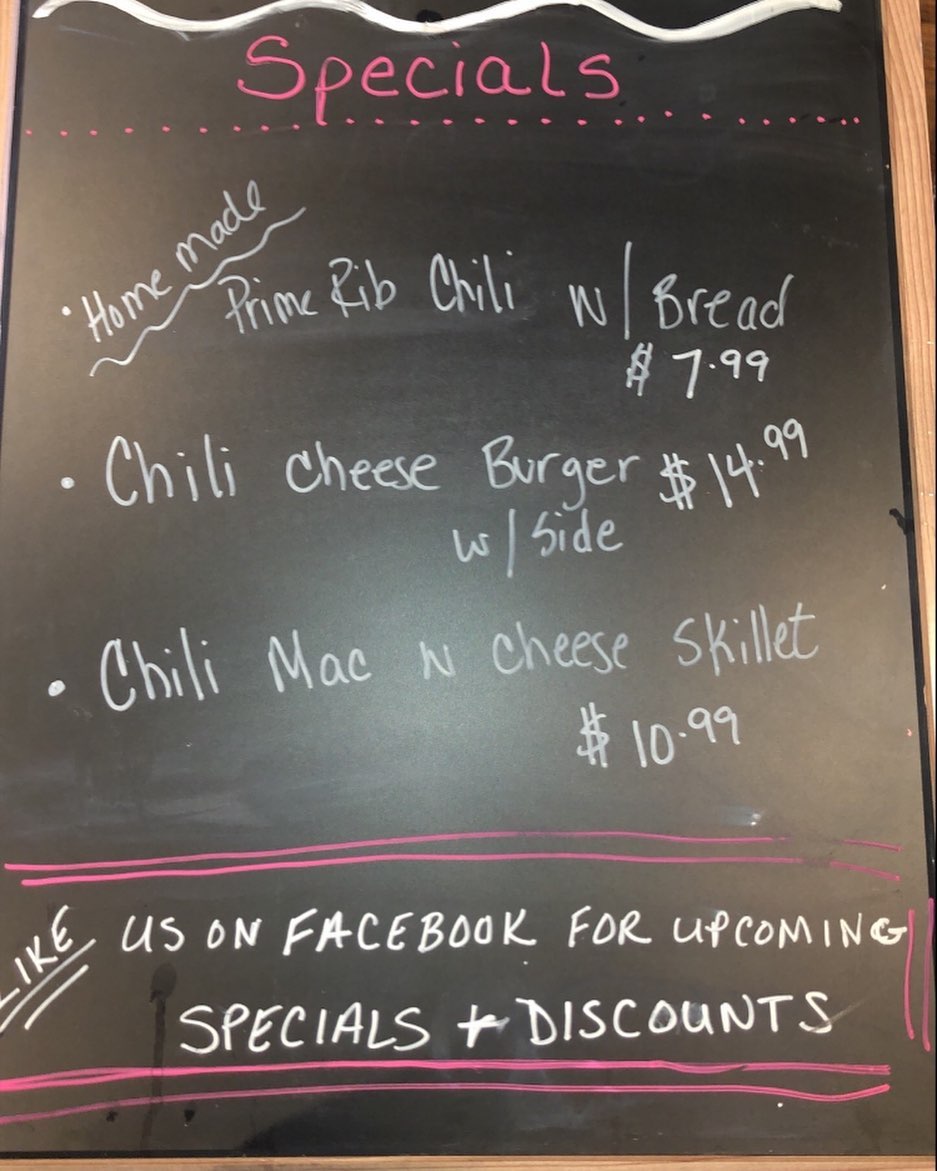 Specials
• Home made Prime Rib Chili w/ Bread
$ 7.99
• Chili Cheese Burger $14.99
w/ Side
• Chili Mac N Cheese Skillet
$ 10.99
LIKE US ON FACEBOOK FOR UPCOMING
SPECIALS + DISCOUNTS